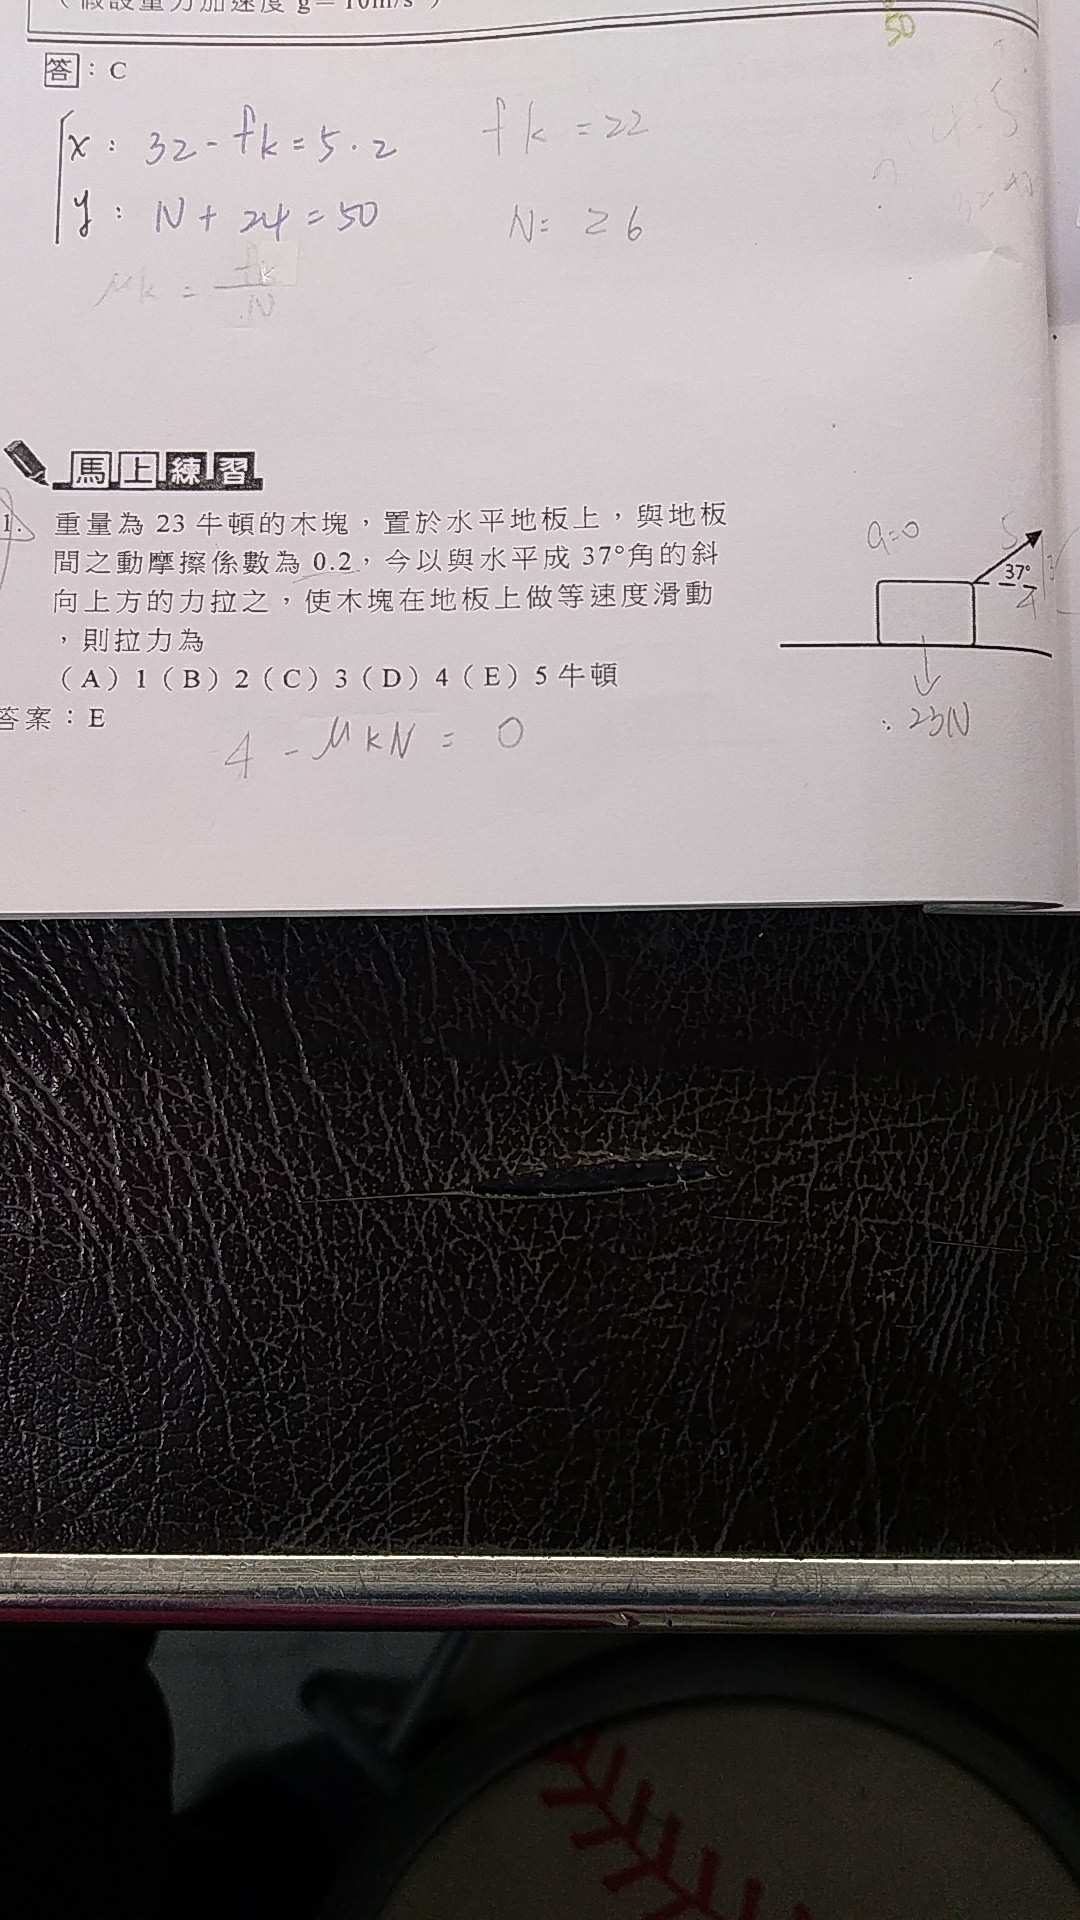 （假設重力加速度 g＝10m/s²）
50
答：C
x： 32-fk=5.2 fk=22
y： N+24=50 N= 26
μk = fk/N
馬上練習
1. 重量為 23 牛頓的木塊，置於水平地板上，與地板
間之動摩擦係數為 0.2，今以與水平成 37°角的斜
向上方的力拉之，使木塊在地板上做等速度滑動
，則拉力為
（A）1（B）2（C）3（D）4（E）5 牛頓
答案：E
a=0
5
37°
4
23N
4 - μkN = 0